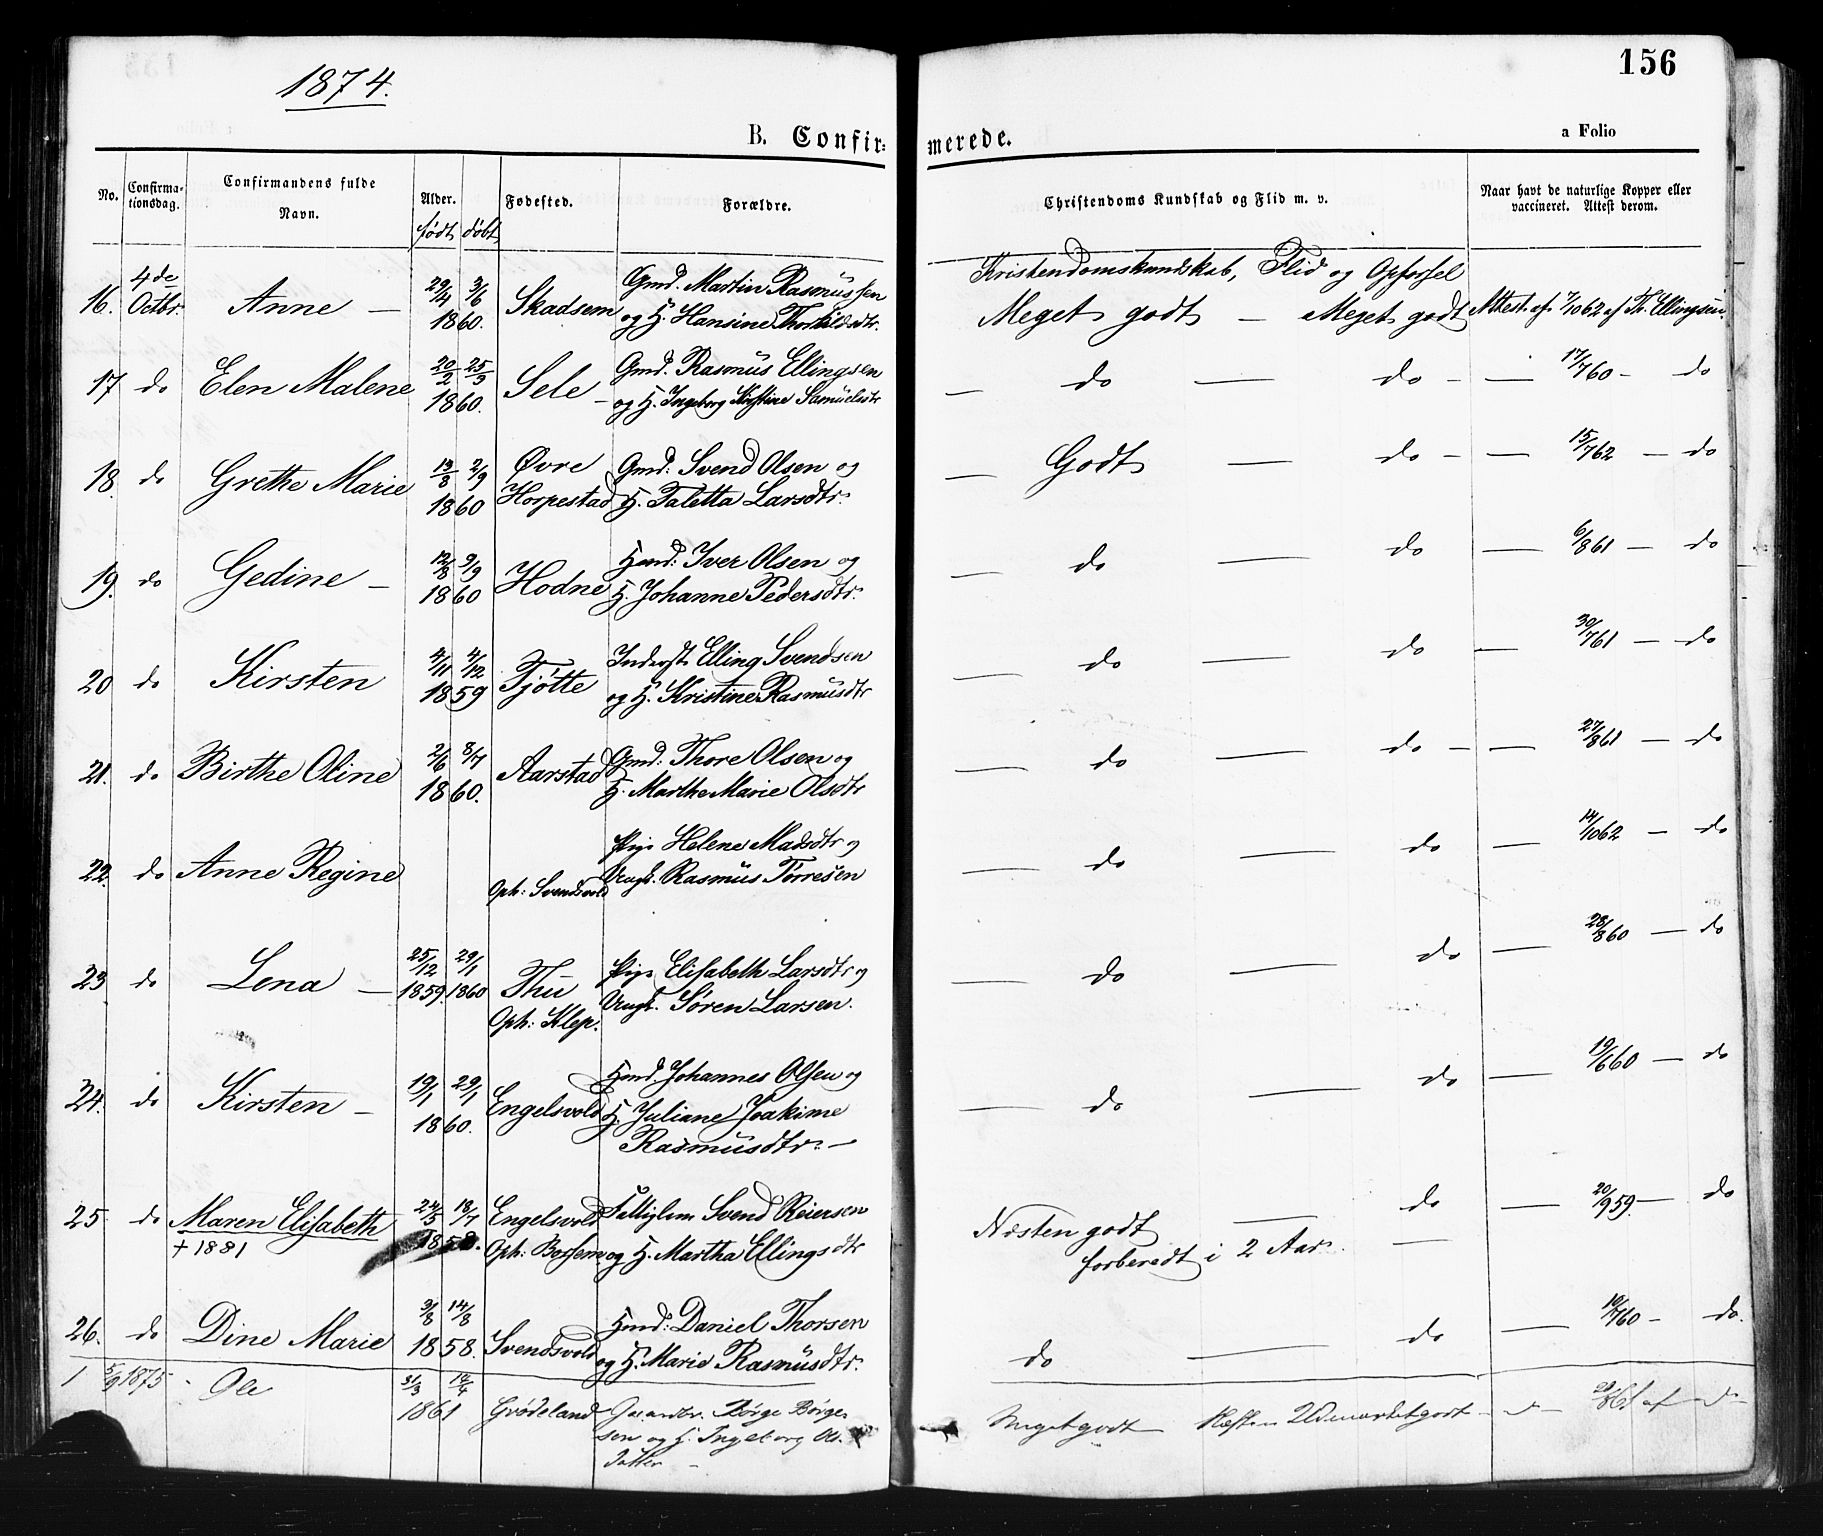 156
1874.
B. Confirmerede.
a Folio
No. Confirmationsdag. Confirmandens fulde Navn. Alder. født døbt Fødested. Forældre. Christendoms Kundskab og Flid m. v. Naar havt de naturlige Kopper eller vaccineret. Attest derom.
Kristendomskundskab, Flid og Opførsel
16. 4de Octbr. Anne — 29/4 3/6 1860. Skadsem Gmd. Martin Rasmussen og H. Hansine Thorkildsdtr. Meget godt — Meget godt Attest af 7/10 62 af Th. Ellingsen.
17 do Elen Malene 20/2 25/3 1860. Sele — Gmd. Rasmus Ellingsen og H. Ingeborg Kirstine Samuelsdtr — do — do — — 17/7 60 — do
18. do Grethe Marie 13/8 2/9 1860 Øvre Horpestad Gmd: Svend Olsen og H. Taletta Larsdtr. — Godt — do — — 15/7 62 — do
19. do Gedine — 12/8 9/9 1860 Hodne Hmd: Iver Olsen og H. Johanne Pedersdtr. — do — do — 6/8 61 — do
20 do Kirsten 4/11 4/12 1859 Tjøtte Inderst Elling Svendsen og H. Kristine Rasmusdtr — do — do — 30/7 61 — do
21. do Birthe Oline 2/6 8/7 1860. Aarstad Gmd: Thore Olsen og H. Marthe Marie Olsdtr — do — do — — 27/8 61 — do
22. do Anne Regine Oph: Svendsvold Pige Helene Madsdtr og Ungk. Rasmus Tørresen — do — do — 14/10 62 — do
23 do Lena — 25/12 1859. 29/1 1860 Thu Oph: Klep. Pige Elisabeth Larsdtr og Ungk. Søren Larsen. — do — do — 28/8 60 — do
24. do Kirsten — 19/1 29/1 1860. Engelsvold Hmd. Johannes Olsen og H. Juliane Joakime Rasmusdtr. — — do — do — 19/6 60 — do
25 do Maren Elisabeth + 1881 24/5 18/7 1858. Engelsvold Oph: Fattiglem Svend Reiersen og H. Martha Ellingsdtr Næsten godt forberedt i 2 Aar. — do — 20/9 59. — do
26. do Dine Marie 3/8 14/8 1858. Svendsvold Hmd: Daniel Thorsen og H. Marie Rasmusdtr. do — do — 19/7 60 — do.
1 5/9 1875 - Ole 31/3 14/4 1861 Grødeland Børge Børgesen og H. Ingeborg Ols Datter — Meget godt